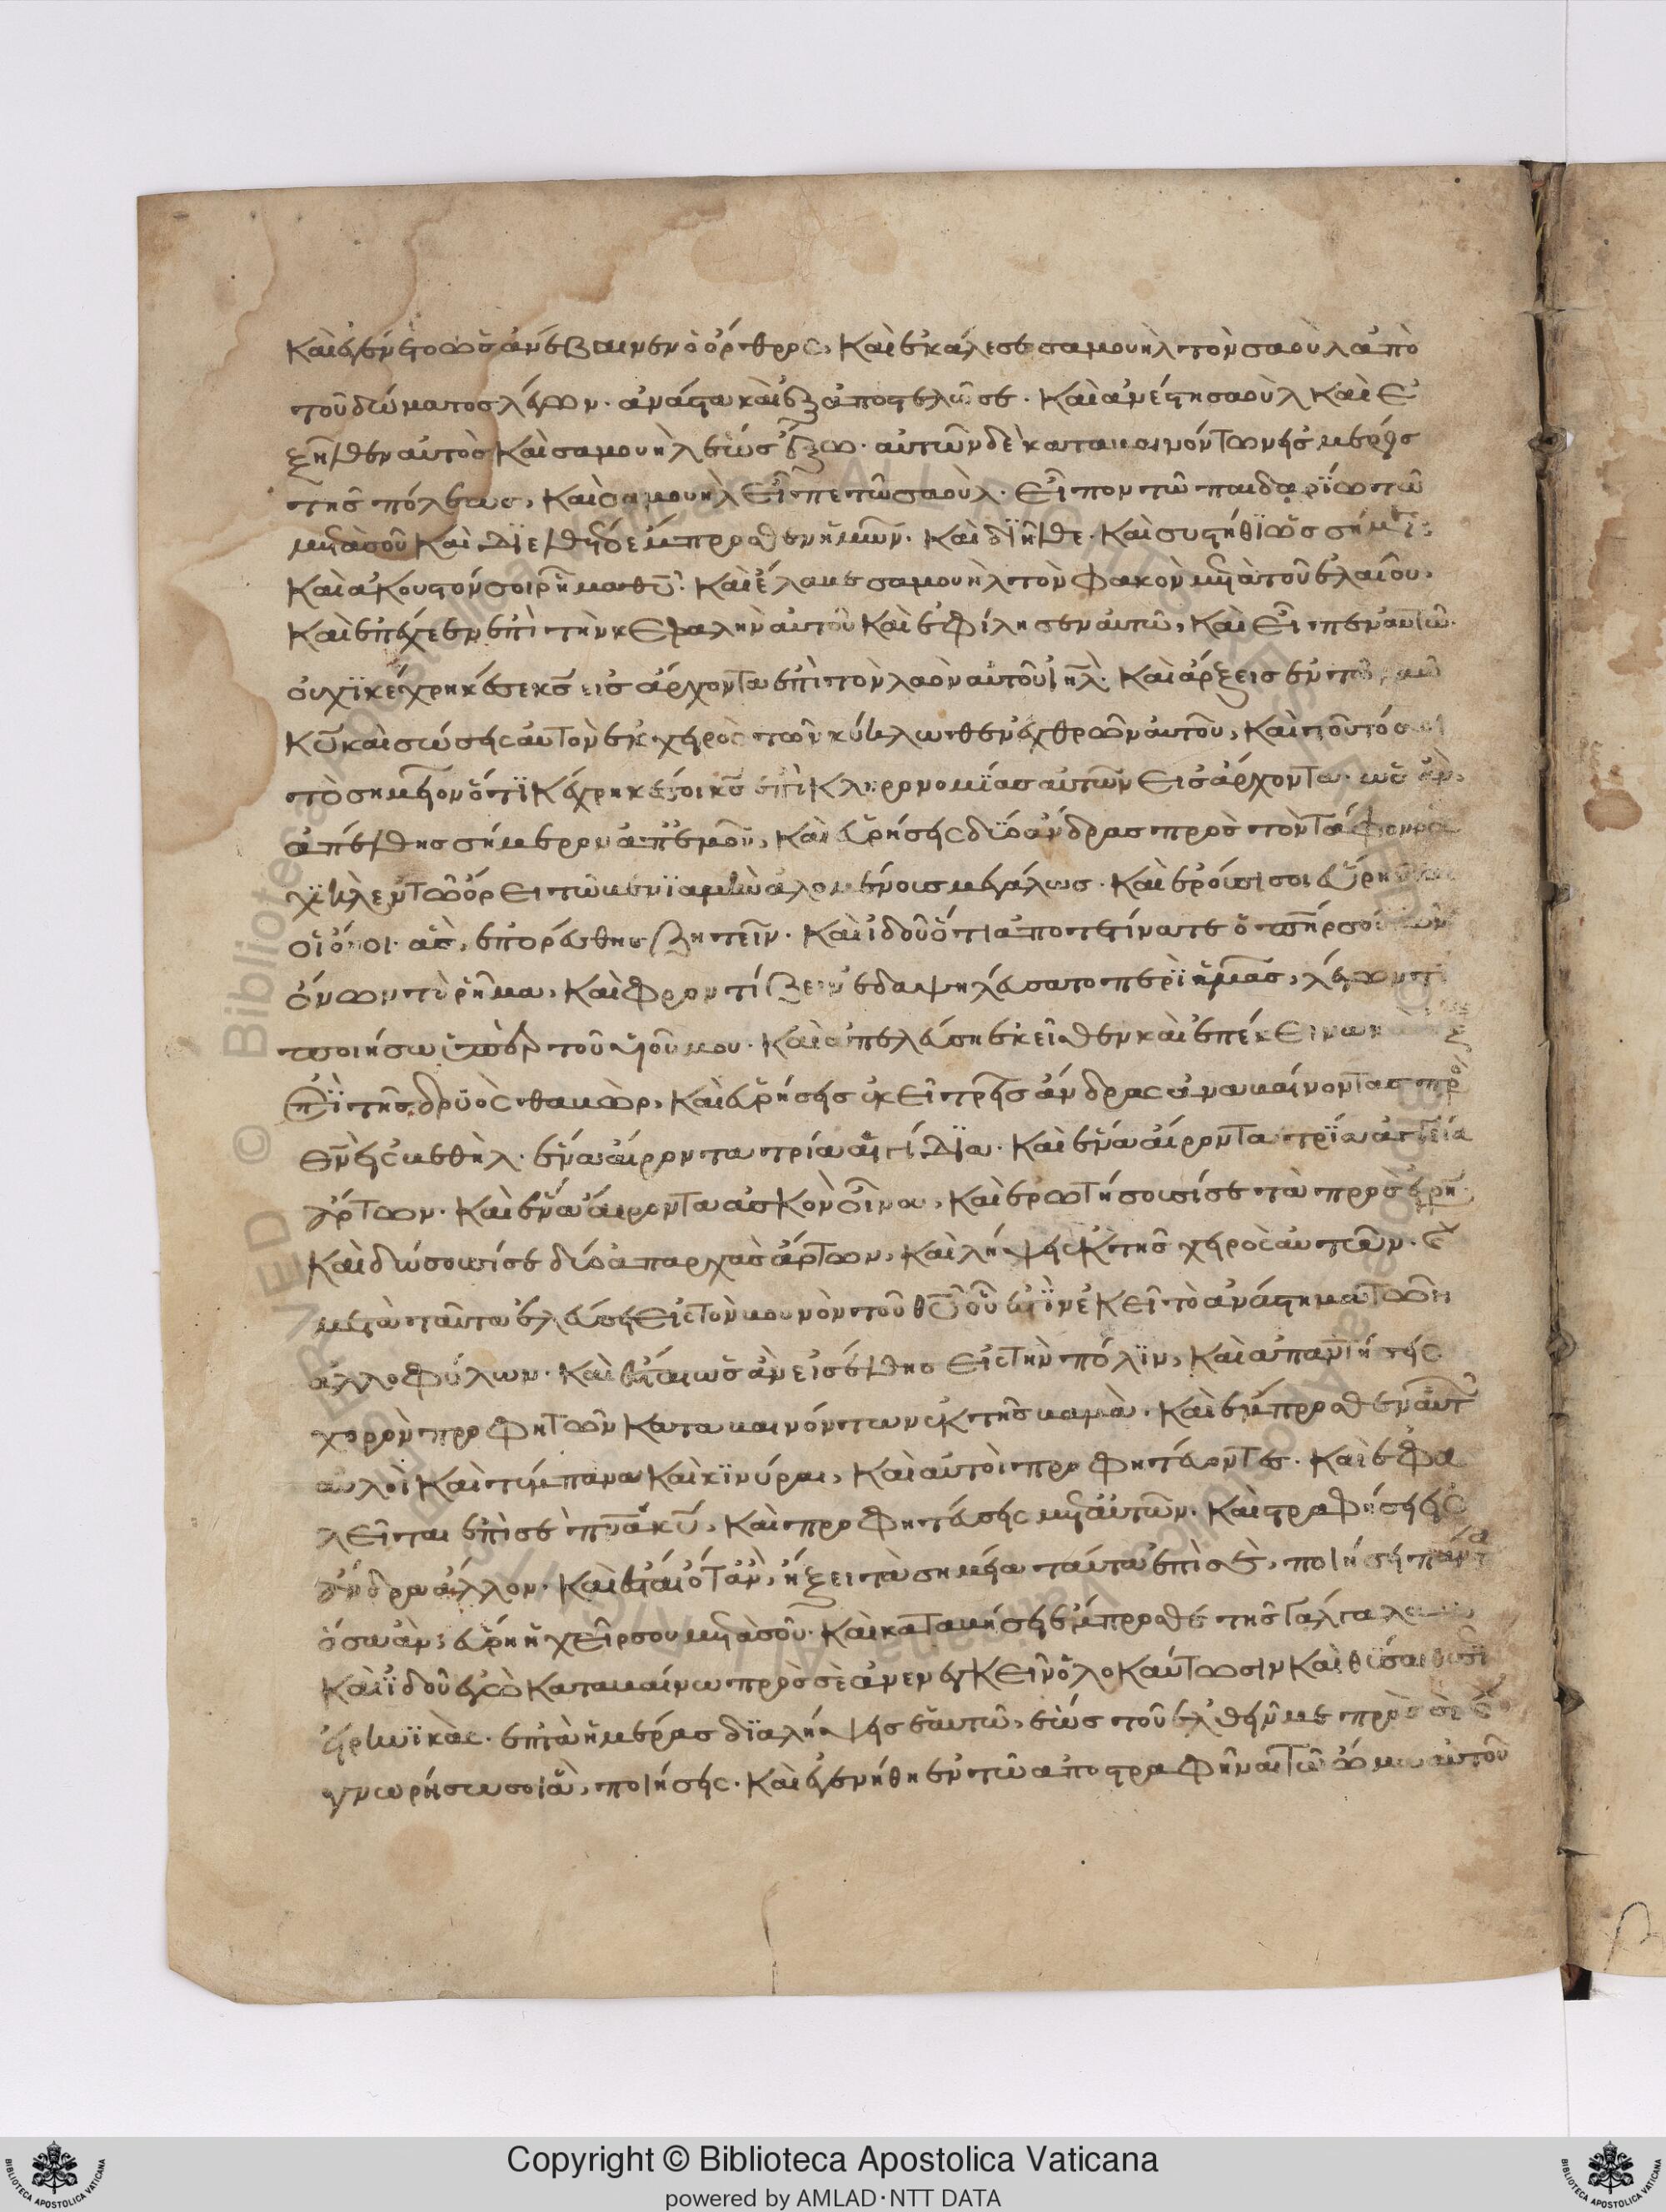 καὶ ἐγένετο ὡς ἀνέβαινεν ὁ ὄρθρος, καὶ ἐκάλεσε σαμουὴλ τὸν σαοὺλ ἀπὸ
τοῦ δώματος λέγων· ἀνάστα καὶ ἐξαποστελῶ σε· καὶ ἀνέστη σαοὺλ καὶ ἐ
ξῆλθεν αὐτὸς καὶ σαμουὴλ ἕως ἔξω· αὐτῶν δὲ καταβαινόντων εἰς μέρος
τῆς πόλεως, καὶ σαμουὴλ εἶπε τῶ σαούλ· εἶπον τῶ παιδαρίω τῶ
μετὰ σοῦ καὶ διελθέτω ἔμπροσθεν ἡμῶν· καὶ διῆλθε· καὶ σὺ στῆθι ὡς σήμερον
καὶ ἄκουσόν σοι ῥῆμα θυ· καὶ ἔλαβε σαμουὴλ τὸν φακὸν μετὰ τοῦ ἐλαίου,
καὶ ἐπέχεεν ἐπὶ τὴν κεφαλὴν αὐτοῦ καὶ ἐφίλησεν αὐτῶ, καὶ εἶπεν αὐτῶ·
οὐχὶ κέχρηκέ σε κς εἰς ἄρχοντα ἐπὶ τὸν λαὸν αὐτοῦ ιηλ· καὶ ἄρξεις ἐν τῶ λαῶ
κυ καὶ σώσης αὐτὸν ἐκ χειρὸς τῶν κύκλωθεν ἐχθρῶν αὐτοῦ, καὶ τοῦτό σοι
τὸ σημεῖον ὅτι κέχρηκέ σοι κς ἐπὶ κληρονομίας αὐτῶν εἰς ἄρχοντα· ὡς ἂν,
ἀπέλθης σήμερον ἀπ' ἐμοῦ, καὶ εὑρήσης δύο ἄνδρας πρὸς τὸν τάφον ρα
χιὴλ ἐν τῶ ὄρει τῶ βενϊαμὶν ἁλομένους μεγάλως· καὶ ἐροῦσί σοι εὕρηνται
οἱ ὄνοι ἃς, ἐπορεύθης ζητεῖν· καὶ ἰδοὺ ὅτι ἀποτετίνατε ὁ πηρ σου τῶν
ὄνων τὸ ῥῆμα, καὶ φροντίζειν ἐδαψηλεύσατο περὶ ἡμᾶς, λέγων τί
ποιήσω ὑπὲρ τοῦ υἱοῦ μου· καὶ ἀπελεύση ἐκεῖθεν καὶ ἐπέκεινα
ἐπὶ τῆς δρυὸς θαβὼρ, καὶ εὑρήσης ἐκεῖ τρεῖς ἄνδρας ἀναβαίνοντας πρὸς
θν εἰς βεθήλ· ἕνα αἴροντα τρία αἰγίδια· καὶ ἕνα αἴροντα τρία ἀγγεῖα
ἄρτων· καὶ ἕνα αἴροντα ἀσκὸν οἴνου, καὶ ἐρωτήσουσί σε τὰ πρὸς εἰρη
καὶ δώσουσί σε δύο ἀπαρχὰς ἄρτων, καὶ λήψης ἐκ τῆς χειρὸς αὐτῶν· καὶ
μετὰ ταῦτα ἐλεύση εἰς τὸν βουνὸν τοῦ θυ οὗ ἐστϊν ἐκεῖ τὸ ἀνάστημα τῶν
ἀλλοφύλων· καὶ ἔσται ὡς ἂν εἰσέλθης εἰς τὴν πόλιν, καὶ ἀπαντήσης
χορὸν προφητῶν καταβαινόντων ἐκ τῆς βαμὰ· καὶ ἔμπροσθεν αὐτῶν
αὐλοὶ καὶ τύμπανα καὶ κινύραι, καὶ αὐτοὶ προφητεύοντες· καὶ ἐφα
λεῖται ἐπὶ σὲ πνα κυ, καὶ προφητεύσης μετ' αὐτῶν· καὶ στραφήση εἰς
ἄνδρα ἄλλον· καὶ ἔσται ὅταν, ἥξει τὰ σημεῖα ταῦτα ἐπὶ σὲ, ποιήσει πάντα
ὅσα ἂν, εὕρη ἡ χείρ σου μετὰ σοῦ· καὶ καταβήση ἔμπροσθε τῆς γαλγαλα
καὶ ἰδοὺ ἐγὼ καταβαίνω πρὸς σὲ ἀνενεγκεῖν ὁλοκαύτωσιν καὶ θῦσαι θυσί
εἰρηνικὰς· ἑπτὰ ἡμέρας διαλήψης ἑαυτῶ, ἕως τοῦ ἐλθεῖν με πρὸς σὲ καὶ
γνωρήσω σοι ἃ, ποιήσης· καὶ ἐγενήθη ἐν τῶ ἀποστραφῆναι τῶ ὤμω αὐτοῦ